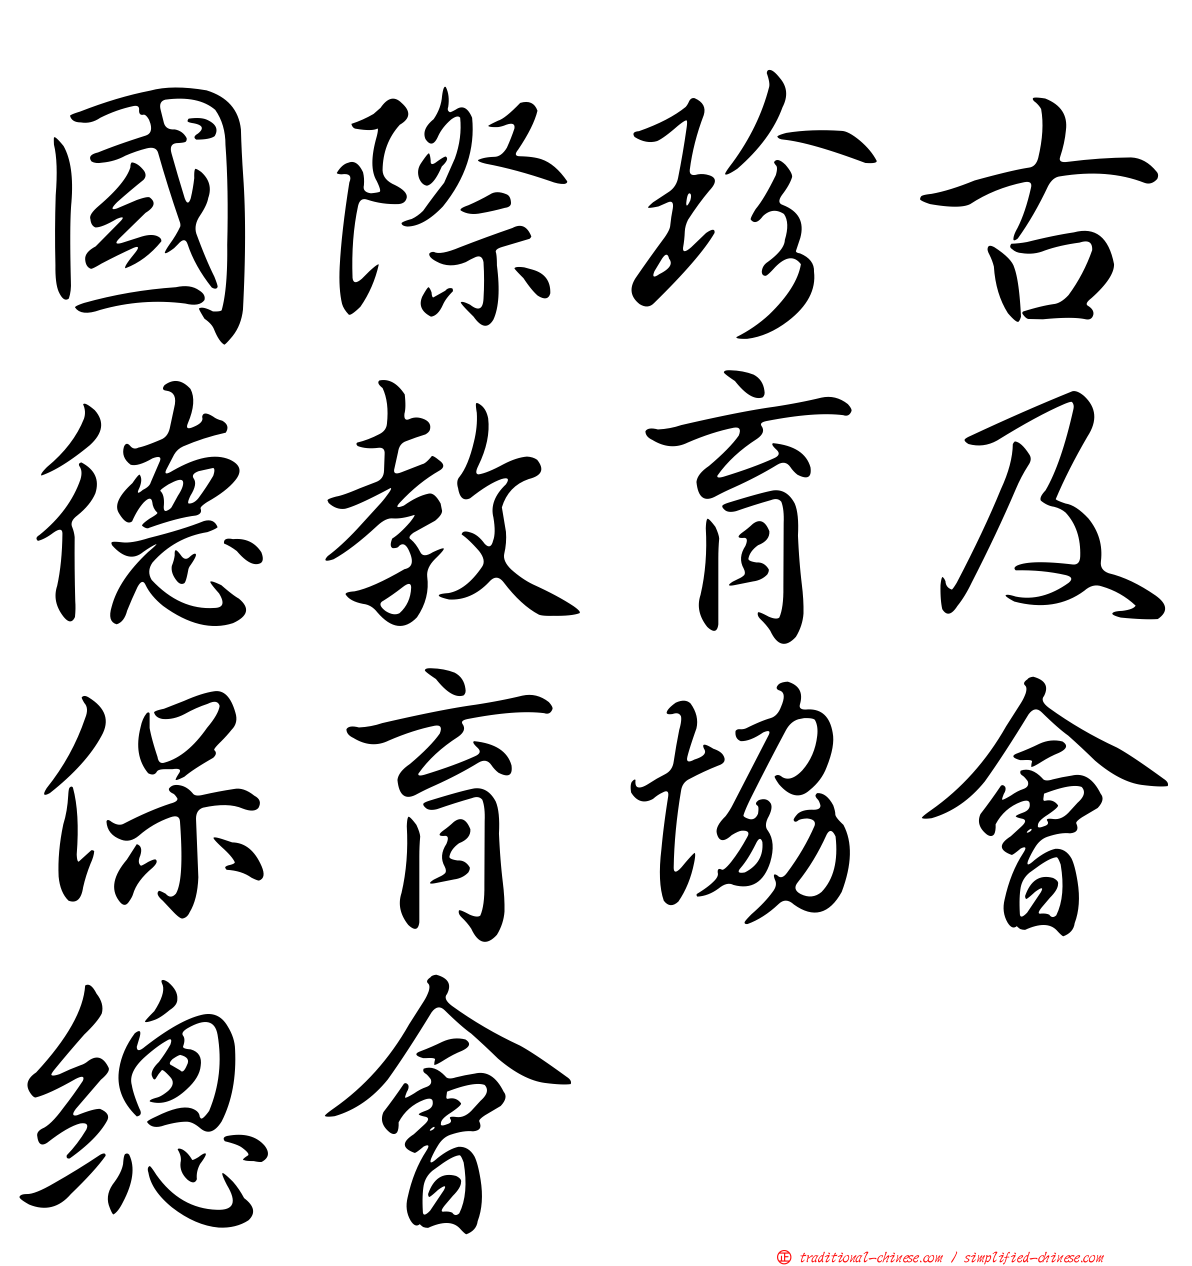 國際珍古
德教育及
保育協會
總會
正 traditional-chinese.com / simplified-chinese.com